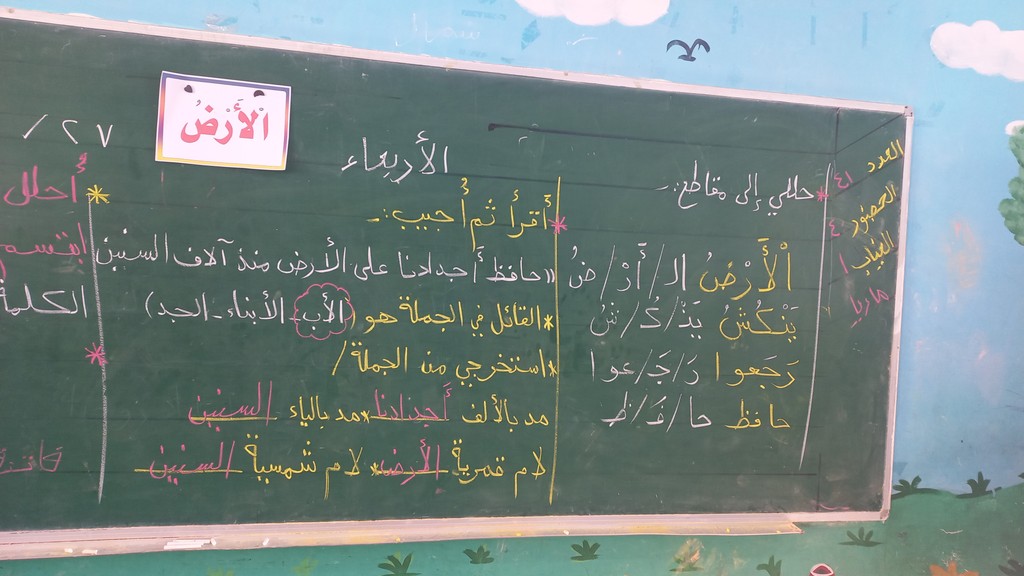 العدد ٤١
الحضور ٤٠
الغياب ١
ماريا
* حللي إلى مقاطع:-
اْلأَرْضُ الـ/أَرْ/ضُ
يَنْكُشُ يَنْـ/كُـ/شُ
رَجَعوا رَ/جَـ/عوا
حافظ حا/فَـ/ظ
الأربعاء
اْلأَرْضُ
* أقرأ ثم أُجيب:-
«حافظ أجدادنا على الأرض منذ آلاف السنين
* القائل في الجملة هو (الأب - الأبناء - الجد)
* استخرجي من الجملة/
مد بالألف أجدادنا * مد بالياء السنين
لام قمرية الأرض * لام شمسية السنين
٢٧ /
* أُحلل
ابتسم
الكلمة
*